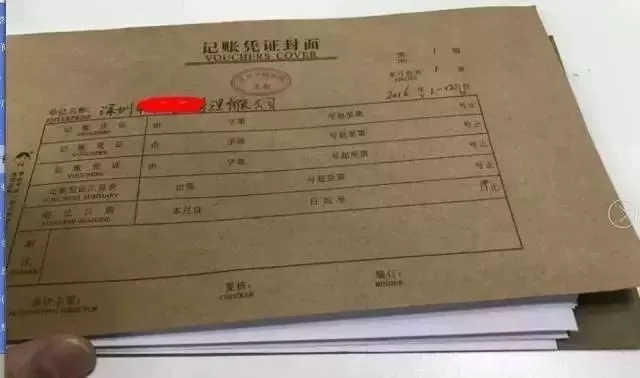 记账凭证封面
VOUCHERS COVER
第 1 册
NO
本月份共 1 册
单位名称: 深圳市 理有限公司
ENTERPRISE
2016 年 1-12 月份
记账凭证 由 字第 号起至第 号止
VOUCHERS
记账凭证 由 字第 号起至第 号止
VOUCHERS
记账凭证 由 字第 号起至第 号止
VOUCHERS
记账凭证汇总表 由第 号起至第 号止
VOUCHERS SUMMARY
起讫日期 本月自 日起至 日止
附
注
REMARK
会计主管:
ACCOUNTING DIRECTOR
复核:
CHECKER
装订:
BINDER